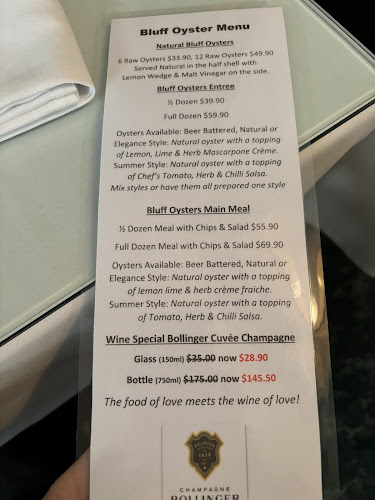 Bluff Oyster Menu
Natural Bluff Oysters
6 Raw Oysters $33.90, 12 Raw Oysters $49.90
Served Natural in the half shell with
Lemon Wedge & Malt Vinegar on the side.
Bluff Oysters Entree
½ Dozen $39.90
Full Dozen $59.90
Oysters Available: Beer Battered, Natural or
Elegance Style: Natural oyster with a topping
of Lemon, Lime & Herb Mascarpone Crème.
Summer Style: Natural oyster with a topping
of Chef's Tomato, Herb & Chilli Salsa.
Mix styles or have them all prepared one style
Bluff Oysters Main Meal
½ Dozen Meal with Chips & Salad $55.90
Full Dozen Meal with Chips & Salad $69.90
Oysters Available: Beer Battered, Natural or
Elegance Style: Natural oyster with a topping
of lemon lime & herb crème fraiche.
Summer Style: Natural oyster with a topping
of Tomato, Herb & Chilli Salsa.
Wine Special Bollinger Cuvée Champagne
Glass (150ml) $35.00 now $28.90
Bottle (750ml) $175.00 now $145.50
The food of love meets the wine of love!
BOLLINGER
CHAMPAGNE
BOLLINGER